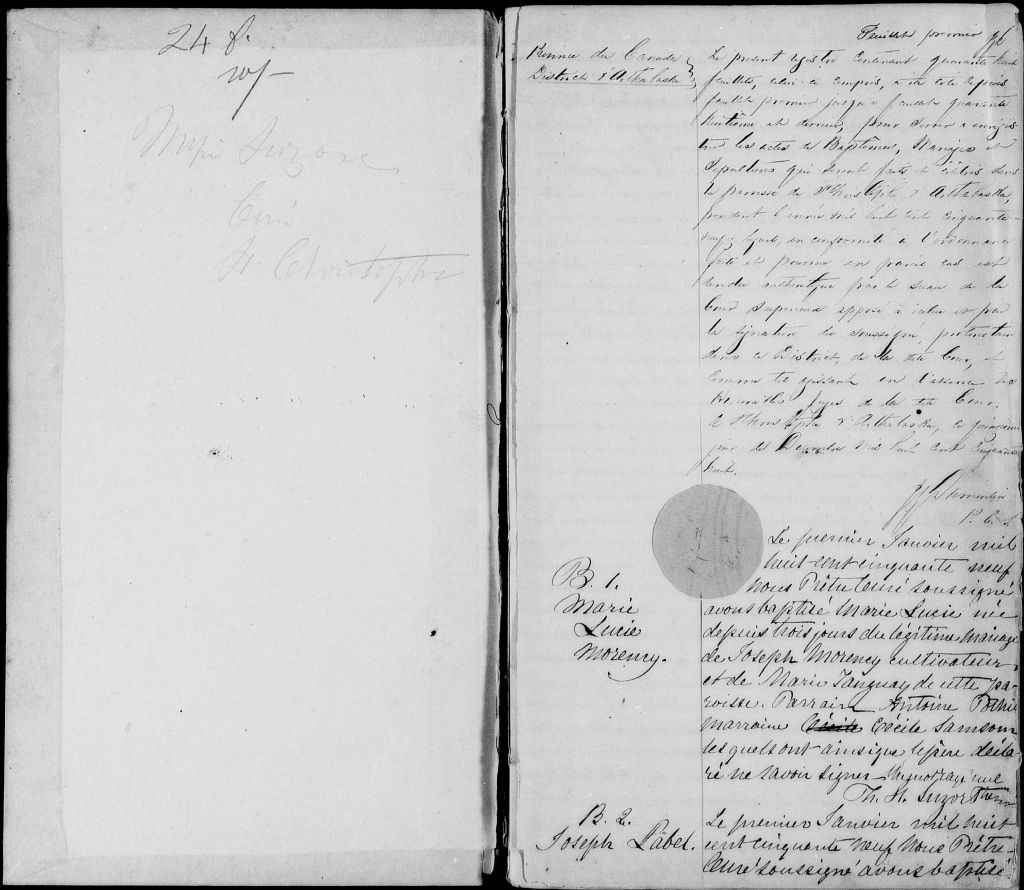 24 f.
Messire Suzor
Curé
St. Christophe
Feuillet premier
Province du Canada
District d'Arthabaska
Le present registre contenant quarante huit
feuillets, celui-ci compris, a été coté depuis
feuillet premier jusqu'à feuillet quarante
huitième et dernier, pour servir a enregis
trer les actes de Baptêmes, Mariages et
Sepultures qui seront faits et célébrés dans
la paroisse de St Christophe d'Arthabaska,
pendant l'année mil huit cent cinquante-
neuf; lequel, en conformité a l'ordonnance
faite et pourvue en pareil cas est
rendu authentique par le sceau de la
Cour Superieure apposé à icelui et par
la signature du soussigné, protonotaire
dans ce District, de la dite Cour, et
comme tel agissant en l'absence des
Honorables Juges de la dite Cour.
St Christophe d'Arthabaska, ce
jour de Decembre mil huit cent cinquante
huit.
P. C. S.
B. 1.
Marie
Lucie
Morency.
Le premier Janvier mil
huit-cent cinquante neuf
Nous Prêtre Curé soussigné
avons baptisé Marie Lucie née
depuis trois jours du légitime mariage
de Joseph Morency cultivateur
et de Marie Tanguay de cette pa-
roisse. Parrain Antoine
marraine Cécile Cécile Samson
lesquels ont ainsi que le père décla
ré ne savoir signer. Un mot rayé nul
Th. H. Suzor Ptre
B. 2.
Joseph Label.
Le premier Janvier mil huit
cent cinquante neuf Nous Prêtre-
Curé soussigné avons baptisé